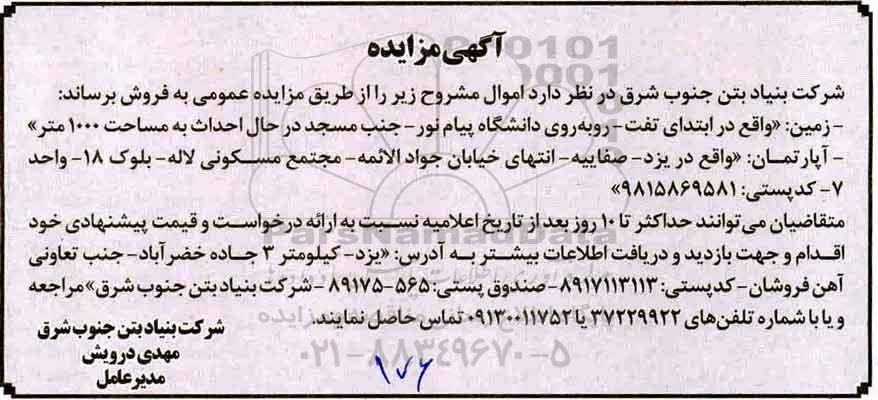 آگهی مزایده
شرکت بنیاد بتن جنوب شرق در نظر دارد اموال مشروح زیر را از طریق مزایده عمومی به فروش برساند:
- زمین: «واقع در ابتدای تفت- روبه‌روی دانشگاه پیام نور- جنب مسجد در حال احداث به مساحت ۱۰۰۰ متر»
- آپارتمان: «واقع در یزد- صفاییه- انتهای خیابان جواد الائمه- مجتمع مسکونی لاله- بلوک ۱۸- واحد
۷- کدپستی: ۹۸۱۵۸۶۹۵۸۱»
متقاضیان می‌توانند حداکثر تا ۱۰ روز بعد از تاریخ اعلامیه نسبت به ارائه درخواست و قیمت پیشنهادی خود
اقدام و جهت بازدید و دریافت اطلاعات بیشتر به آدرس: «یزد- کیلومتر ۳ جاده خضرآباد- جنب تعاونی
آهن فروشان- کدپستی: ۸۹۱۷۱۱۳۱۱۳- صندوق پستی: ۵۶۵-۸۹۱۷۵- شرکت بنیاد بتن جنوب شرق» مراجعه
و یا با شماره تلفن‌های ۳۷۲۲۹۹۲۲ یا ۰۹۱۳۰۰۱۱۷۵۲ تماس حاصل نمایند.
شرکت بنیاد بتن جنوب شرق
مهدی درویش
مدیرعامل
ParsNamadData
۰۲۱-۸۸۳۴۹۶۷۰-۵
۱۷۶